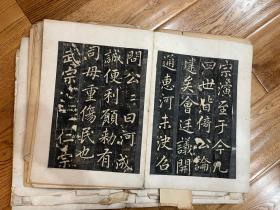 宗演至于今凡
四世皆倚公論
建矣會廷議開
通惠河未決召
問公公曰河成
誠便利願勑有
司毋重傷民也
武宗仁宗